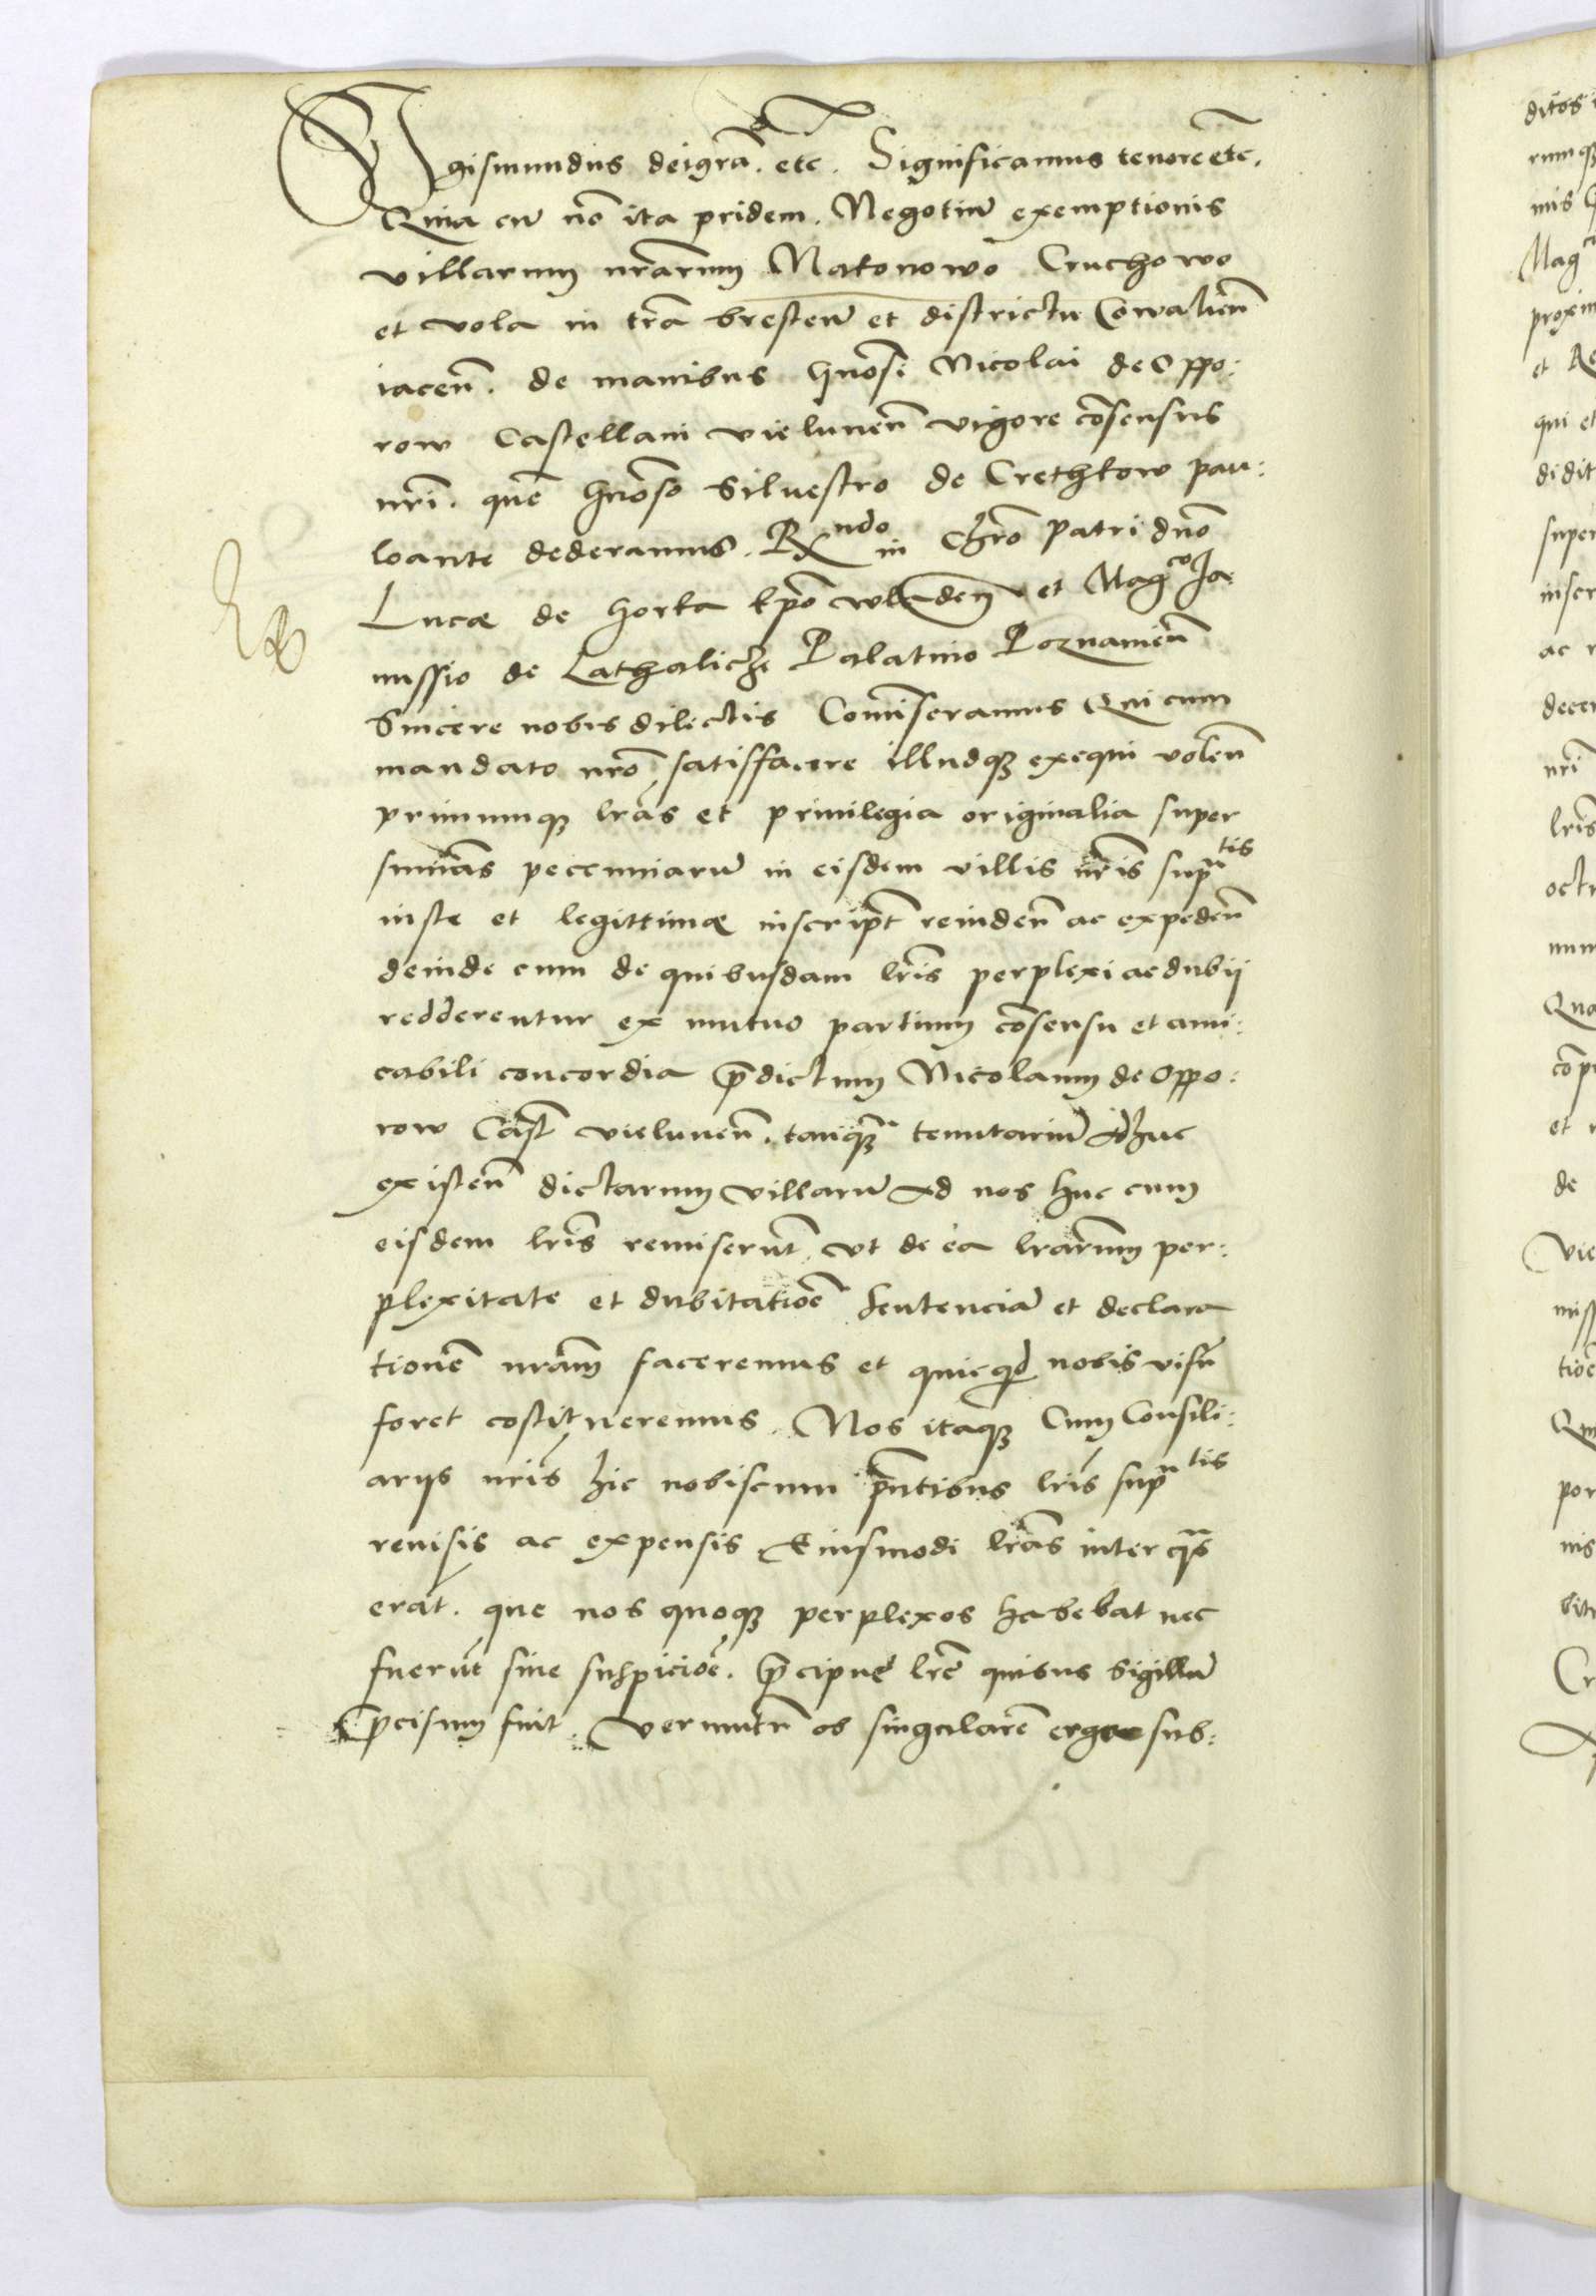 Sigismundus dei grã. etc. Significamus tenore etc.
Quia cū nõ ita pridem. Negotiū exemptionis
villarum nrãrum Makonowo Cruchowo
et vola in trã bresteñ et districtu Cowalieñ
iaceñ. de manibus Gnõsi Nicolai de Oppo:
row Castellani vieluneñ vigore cõsensus
nrĩ. quẽ Gnõso Silvestro de Crethkow pau:
Rndo in Chrõ patri dnõ
Lucæ de Gorka Epõ wladeñ et Magco Ja:
nussio de Lathaliche Palatino Poznanieñ
Sincere nobis dilectis Comĩseramus Qui cum
mandato nrõ satisfacere illudq₃ exequi voleñ
primumq₃ lrãs et privilegia originalia super
summas pecuniarū in eisdem villis nrĩs suprãtis
iuste et legittimæ inscript̃ reindeñ ac expedeñ
deinde cum de quibusdam lrĩs perplexi ac dubij
redderentur ex mutuo partium cõsensu et ami:
cabili concordia p̃dictum Nicolaum de Oppo:
row Cast̃ vieluneñ. tanq₃ tenutariū adhuc
existeñ dictarum villarū ad nos huc cum
eisdem lrĩs remiserūt vt de ea lrãrum per:
plexitate et dubitatiõe Sentenciã et declara
tionẽ nrãm faceremus et quicqd nobis visū
foret cõstitueremus. Nos itaq₃ Cum Consili:
arijs nrĩs hic nobiscum p̃ntibus lrĩs suprãtis
revisis ac expensis Eiusmodi lrãs inter qãs
erãt. que nos quoq₃ perplexos habebat nec
fuerūt sine suspiciõe. p̃cipue lrẽ quibus Sigillū
p̃cisum fuit. Verumtñ ob singularẽ erga sub: